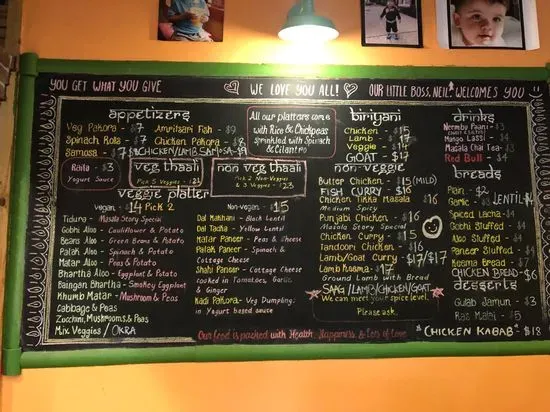 YOU GET WHAT YOU GIVE
WE LOVE YOU ALL!
OUR LITTLE BOSS, NEIL WELCOMES YOU
APPETIZERS
Veg Pakora - $7
Amritsari Fish - $9
Spinach Rolls - $7
Chicken Pakora - $8
Samosa - $7
CHICKEN/LAMB SAMOSA - $9
Raita - $3
Yogurt Sauce
All our platters come
with Rice & Chickpeas
sprinkled with Spinach
& Cilantro
VEG THAALI
Pick 5 Veggies - $21
NON VEG THAALI
Pick 2 Non-Veggies
& 3 Veggies - $23
VEGGIE PLATTER
Vegan - $14 PICK 2
Tiduna - Masala Story Special
Gobhi Aloo - Cauliflower & Potato
Beans Aloo - Green Beans & Potato
Palak Aloo - Spinach & Potato
Matar Aloo - Peas & Potato
Bhartha Aloo - Eggplant & Potato
Baingan Bhartha - Smokey Eggplant
Khumb Matar - Mushroom & Peas
Cabbage & Peas
Zucchini, Mushrooms & Peas
Mix Veggies / OKRA
Non-vegan - $15
Dal Makhani - Black Lentil
Dal Tadka - Yellow Lentil
Matar Paneer - Peas & Cheese
Palak Paneer - Spinach &
Cottage Cheese
Shahi Paneer - Cottage Cheese
cooked in Tomatoes, Garlic
& Ginger
Kadi Pakora - Veg Dumpling
in Yogurt based sauce
Our food is packed with Health, Happiness, & Lots of Love
BIRIYANI
Chicken - $15
Lamb - $17
Veggie - $14
GOAT - $17
NON-VEGGIE
Butter Chicken - $15 (MILD)
FISH CURRY $16
Chicken Tikka Masala $16
Medium Spicy
Punjabi Chicken - $16
Masala Story Special
Chicken Curry - $15
Tandoori Chicken - $16
Lamb/Goat Curry - $17/$17
Lamb Keema - $17
Ground Lamb with Bread
SAAG/LAMB/CHICKEN/GOAT
We can meet your spice level.
Please ask.
DRINKS
Neembu Paani - $3
Mango Lassi - $4
Masala Chai Tea - $3
Red Bull - $4
BREADS
Plain - $2
Garlic - $3
LENTIL $4
Spiced Lacha - $4
Gobhi Stuffed - $4
Aloo Stuffed - $4
Paneer Stuffed - $4
Keema Bread - $7
CHICKEN BREAD - $6
DESSERTS
Gulab Jamun - $3
Ras Malai - $5
"CHICKEN KABAB" $18